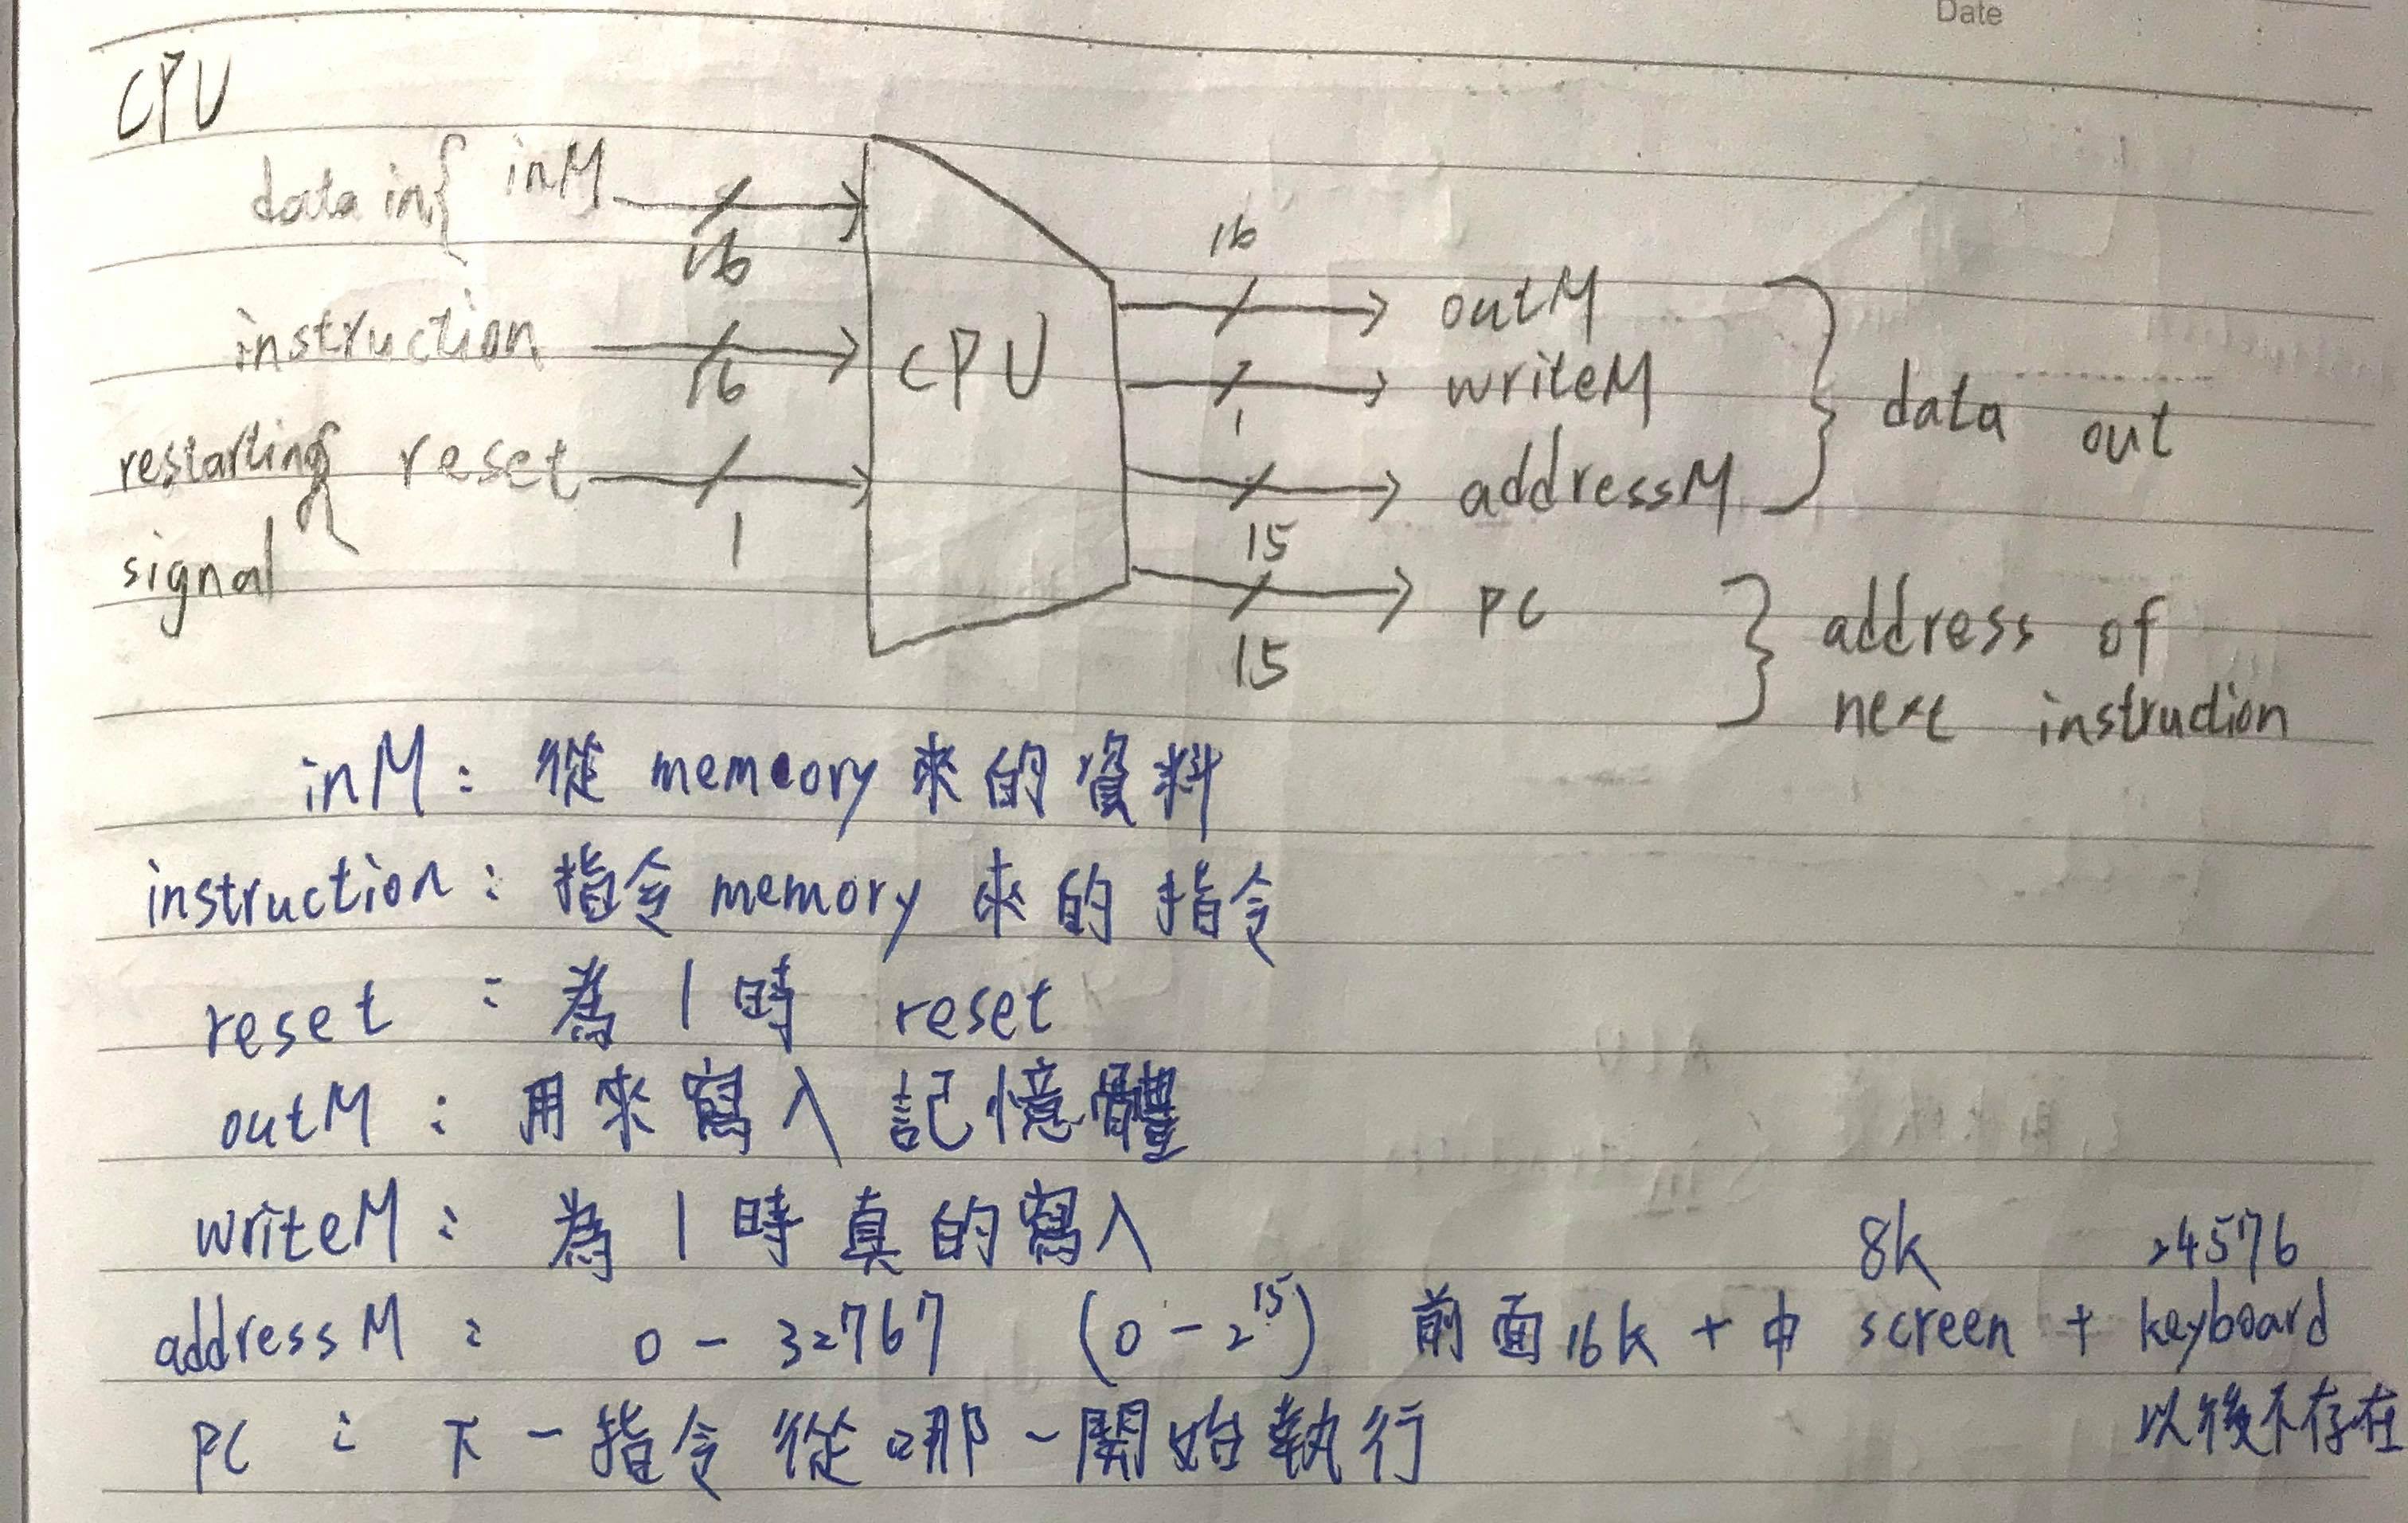 Date
CPU
data in { inM
16
instruction
16
restarting signal { reset
1
CPU
16
outM
writeM
1
addressM
15
PC
15
} data out
} address of
next instruction
inM : 從 memeory 來的資料
instruction : 指令 memory 來的指令
reset : 為 1 時 reset
outM : 用來寫入記憶體
writeM : 為 1 時真的寫入
8k 24576
addressM : 0 - 32767 (0 - 2^15) 前面 16k + 中 screen + keyboard
以後不存在
PC : 下一指令從哪一開始執行